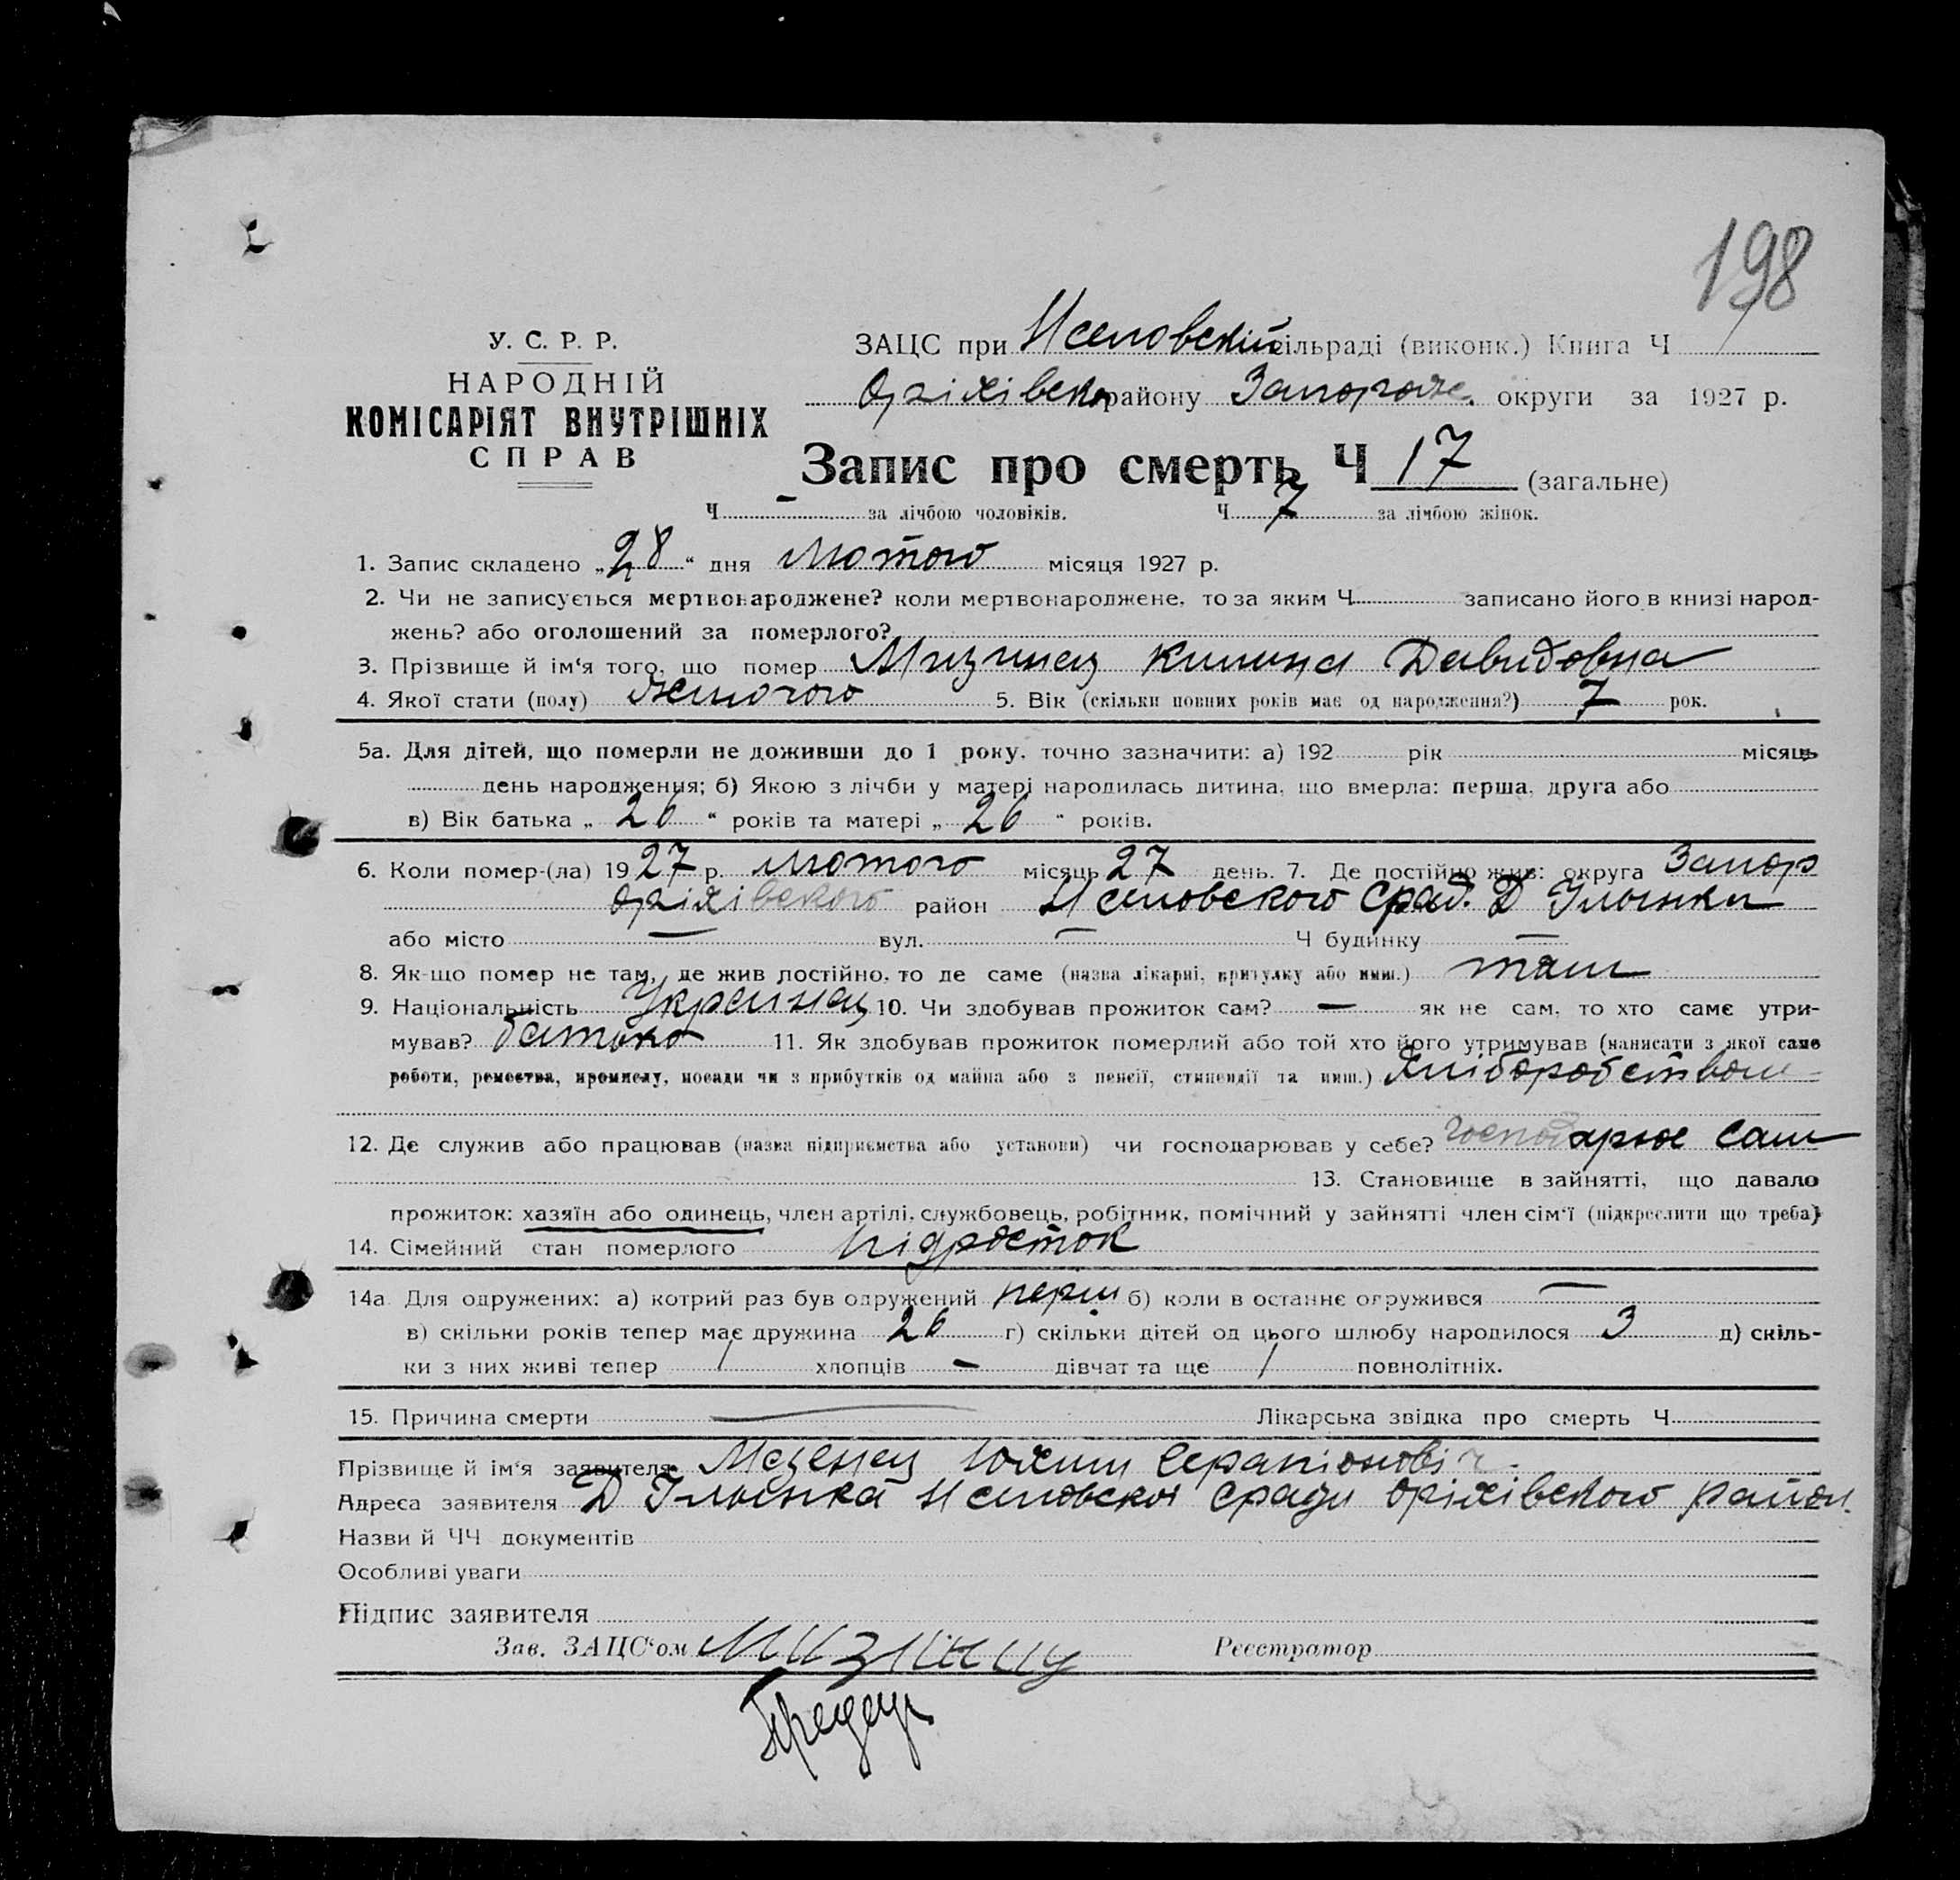 198
У. С. Р. Р.
НАРОДНІЙ
КОМІСАРІЯТ ВНУТРІШНІХ
СПРАВ
ЗАЦС при сільраді (виконк.) Книга Ч
Оріхівсько району Запорож. округи за 1927 р.
Запис про смерть Ч 17 (загальне)
Ч - за лічбою чоловіків. Ч 7 за лічбою жінок.
1. Запис складено „28“ дня лютого місяця 1927 р.
2. Чи не записується мертвонароджене? коли мертвонароджене, то за яким Ч записано його в книзі народ-
жень? або оголошений за померлого?
3. Прізвище й ім‘я того, що помер Мизинец Килина Давидовна
4. Якої стати (полу) жіночого 5. Вік (скільки повних років має од народження?) 7 рок.
5а. Для дітей, що померли не доживши до 1 року, точно зазначити: а) 192 рік місяць
день народження; б) Якою з лічби у матері народилась дитина, що вмерла: перша, друга або
в) Вік батька „26“ років та матері „26“ років.
6. Коли помер-(ла) 1927 р. лютого місяць 27 день. 7. Де постійно жив: округа Запор
Оріхівского район срад. Д Ільинки
або місто — вул. — Ч будинку —
8. Як-що помер не там, де жив постійно, то де саме (назва лікарні, притулку або инш.) там
9. Національність Украінец 10. Чи здобував прожиток сам? — як не сам, то хто саме утри-
мував? батько 11. Як здобував прожиток померлий або той хто його утримував (написати з якої саме
роботи, ремества, промислу, посади чи з прибутків од майна або з пенсії, стипендії та инш.) Хліборобством
12. Де служив або працював (назва підприємства або установи) чи господарював у себе? господарює сам
13. Становище в зайнятті, що давало
прожиток: хазяїн або одинець, член артілі, службовець, робітник, помічний у зайнятті член сім‘ї (підкреслити що треба)
14. Сімейний стан померлого підросток
14а Для одружених: а) котрий раз був одружений перш б) коли в останнє одружився —
в) скільки років тепер має дружина 26 г) скільки дітей од цього шлюбу народилося 3 д) скіль-
ки з них живі тепер 1 хлопців - дівчат та ще 1 повнолітніх.
15. Причина смерти — Лікарська звідка про смерть Ч
Прізвище й ім‘я заявителя Мезенец Юхим Серапіоновіч
Адреса заявителя Д Ільинка сради Оріхівского район.
Назви й ЧЧ документів
Особливі уваги
Підпис заявителя
Зав. ЗАЦС‘ом Реєстратор